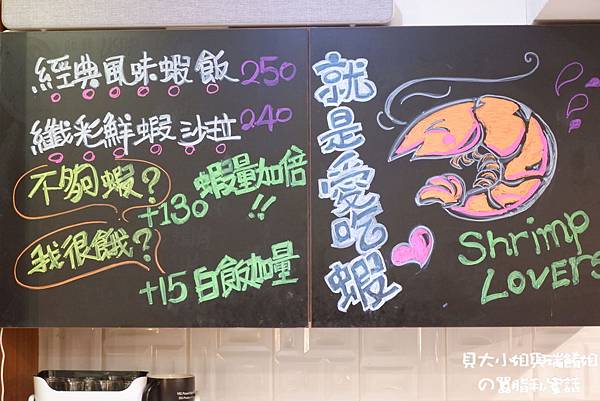 經典風味蝦飯 250
纖彩鮮蝦沙拉 240
不夠蝦？
+130 蝦量加倍!!
我很餓？
+15 白飯加量
就是愛吃蝦
Shrimp
LOVERS
貝大小姐與瑞餚姐
の囂脂私蜜話